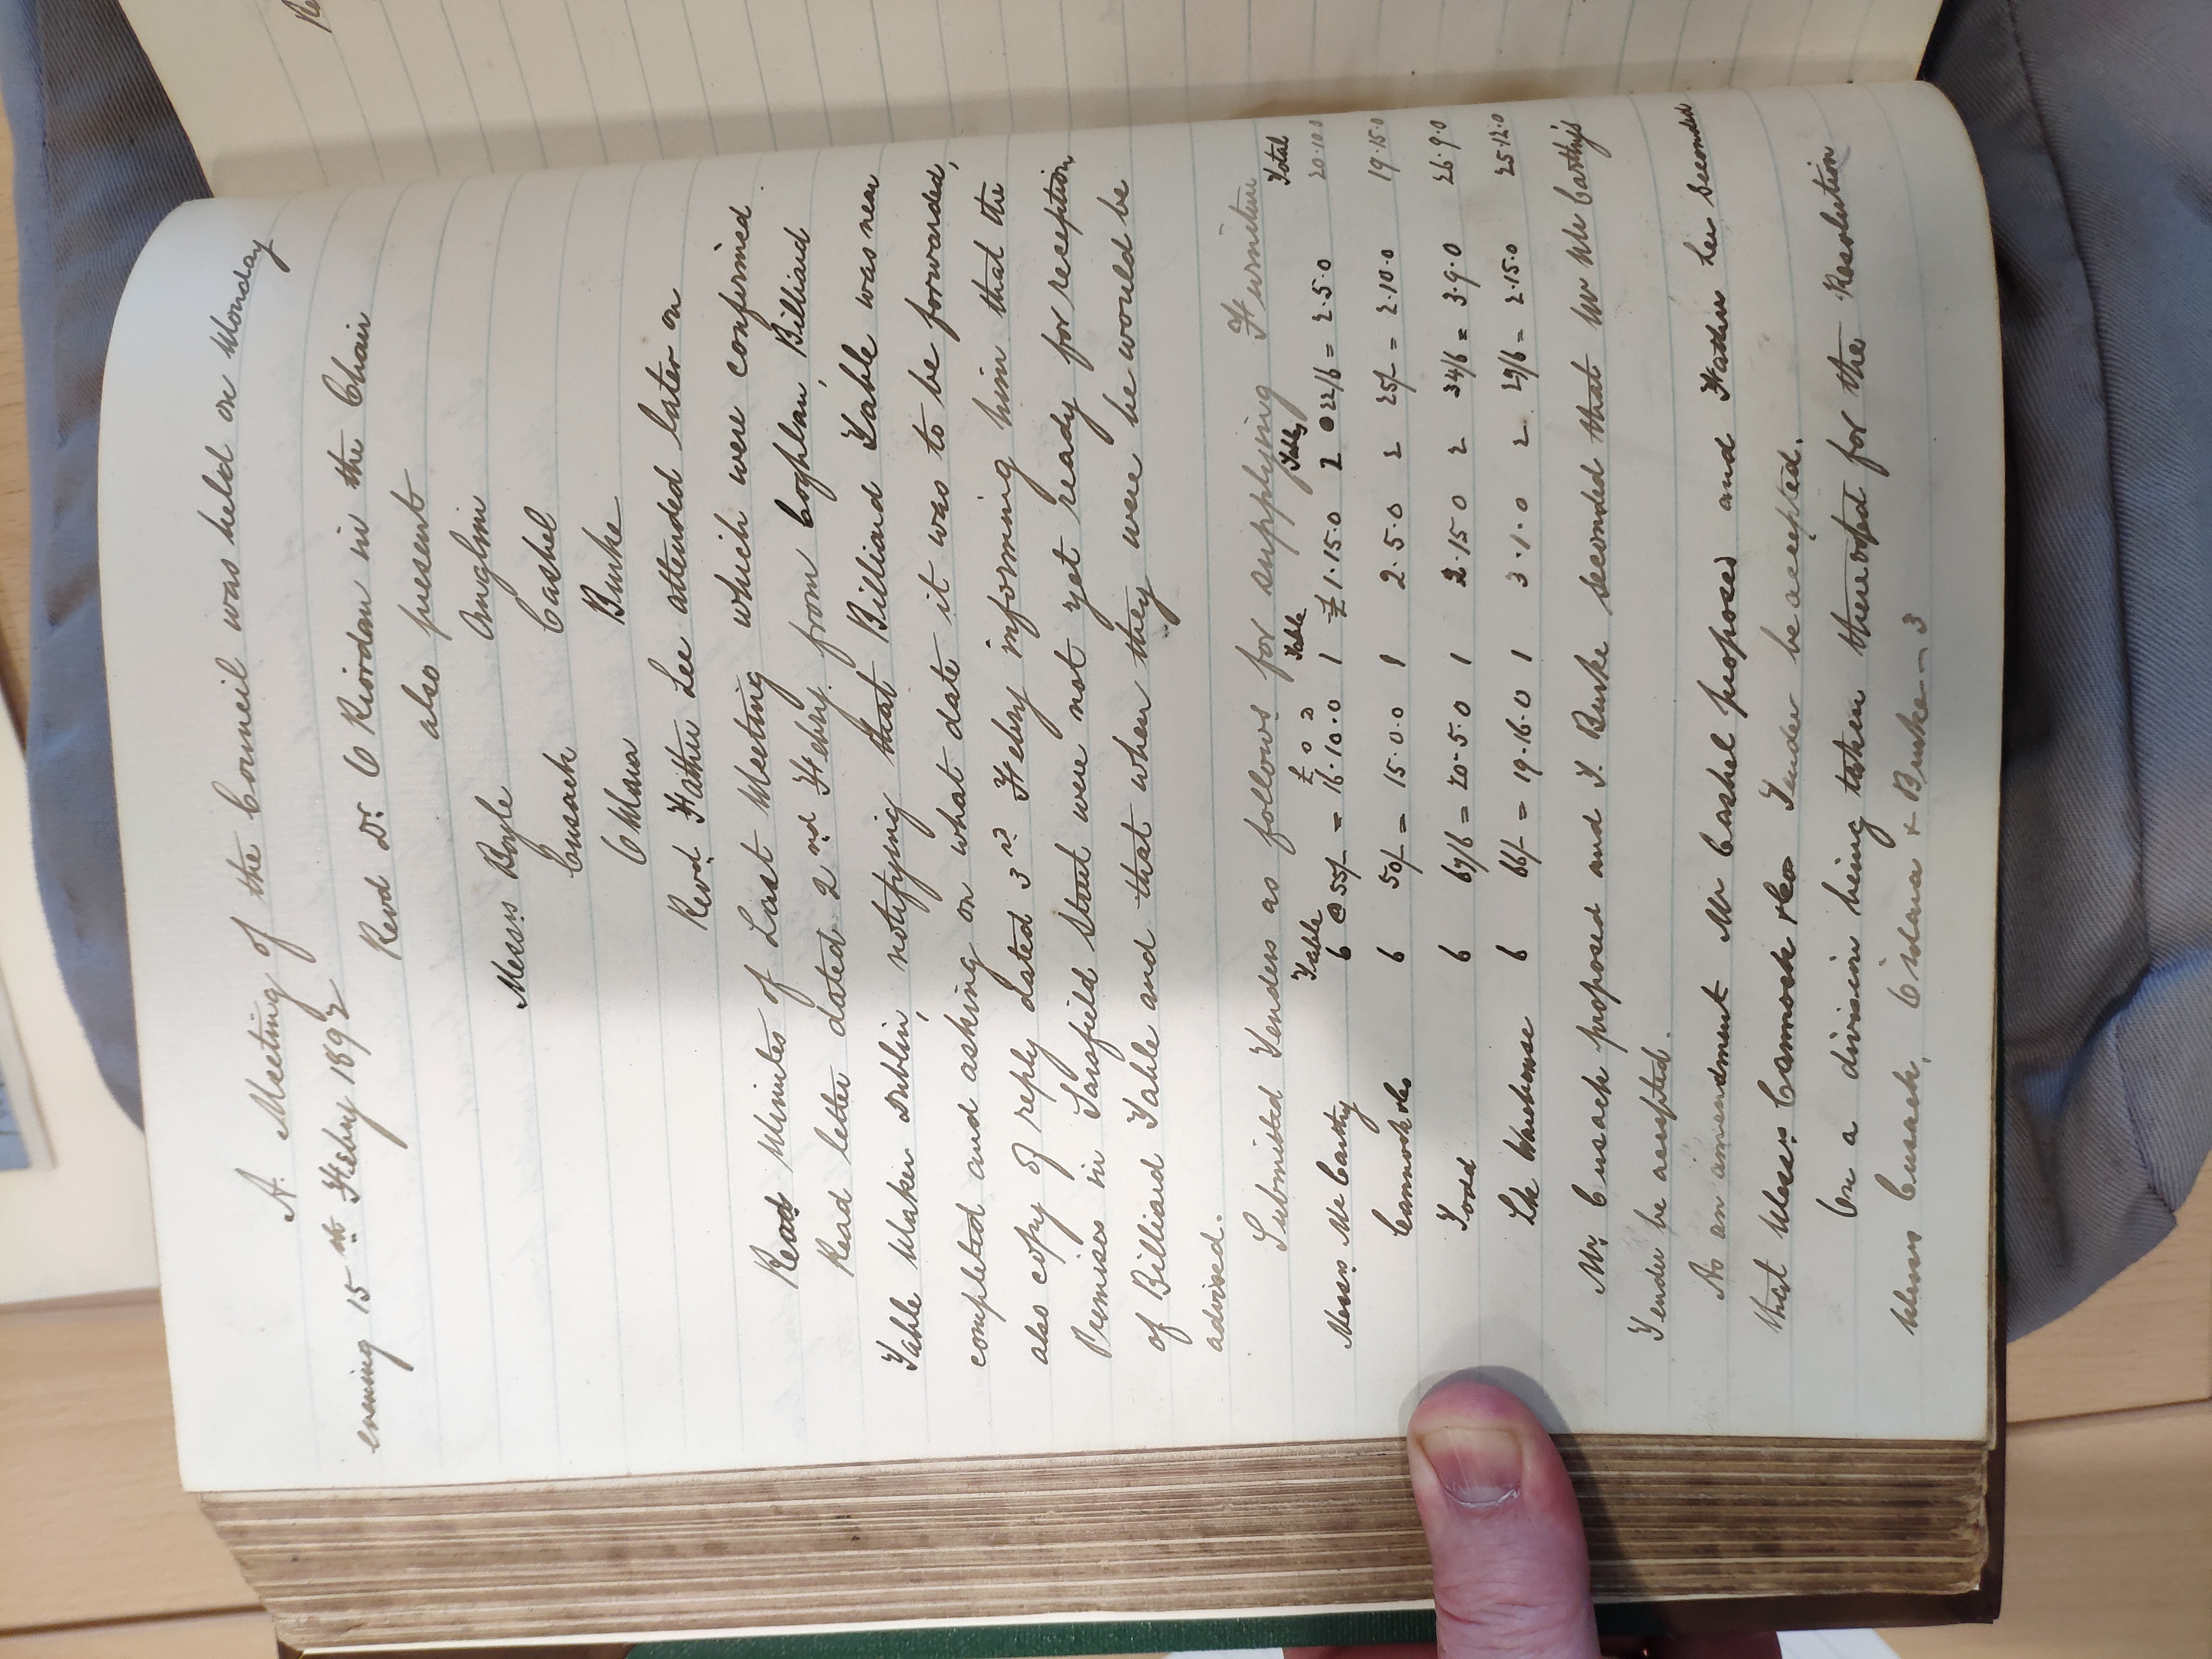 A. Meeting of the Council was held on Monday
evening 15th Feby 1892
Revd Dr. O Riordan in the Chair
also present
Messrs Boyle Anglim
Cusack Cashel
O Mara Burke
Revd. Father Lee attended later on
Read Minutes of Last Meeting which were confirmed.
Read letter dated 2nd Feby. from Coghlan, Billiard
Table Maker Dublin, notifying that Billiard Table was near
completed and asking on what date it was to be forwarded,
also copy of reply dated 3rd Feby informing him that the
Premises in Sarsfield Street were not yet ready for reception
of Billiard Table and that when they were he would be
advised.
Submitted Tenders as follows for supplying Furniture
Table £ s d Table Tables Total
Messrs McCarthy 6 @ 55/- = 16.10.0 1 £1.15.0 2 2 @ 22/6 = 2.5.0 20.10.0
Cannock & Co 6 50/- = 15.0.0 1 2.5.0 2 25/- = 2.10.0 19.15.0
Todd 6 67/6 = 20.5.0 1 2.15.0 2 34/6 = 3.9.0 26.9.0
Lk Warehouse 6 66/- = 19.16.0 1 3.1.0 2 29/6 = 2.15.0 25.12.0
Mr. Cusack proposed and J. Burke seconded that Mr McCarthy's
Tender be accepted.
As an amendment Mr Cashel proposed and Father Lee seconded
that Messrs Cannock & Co Tender be accepted.
On a division being taken there voted for the Resolution
Messrs Cusack, & Burke -- 3